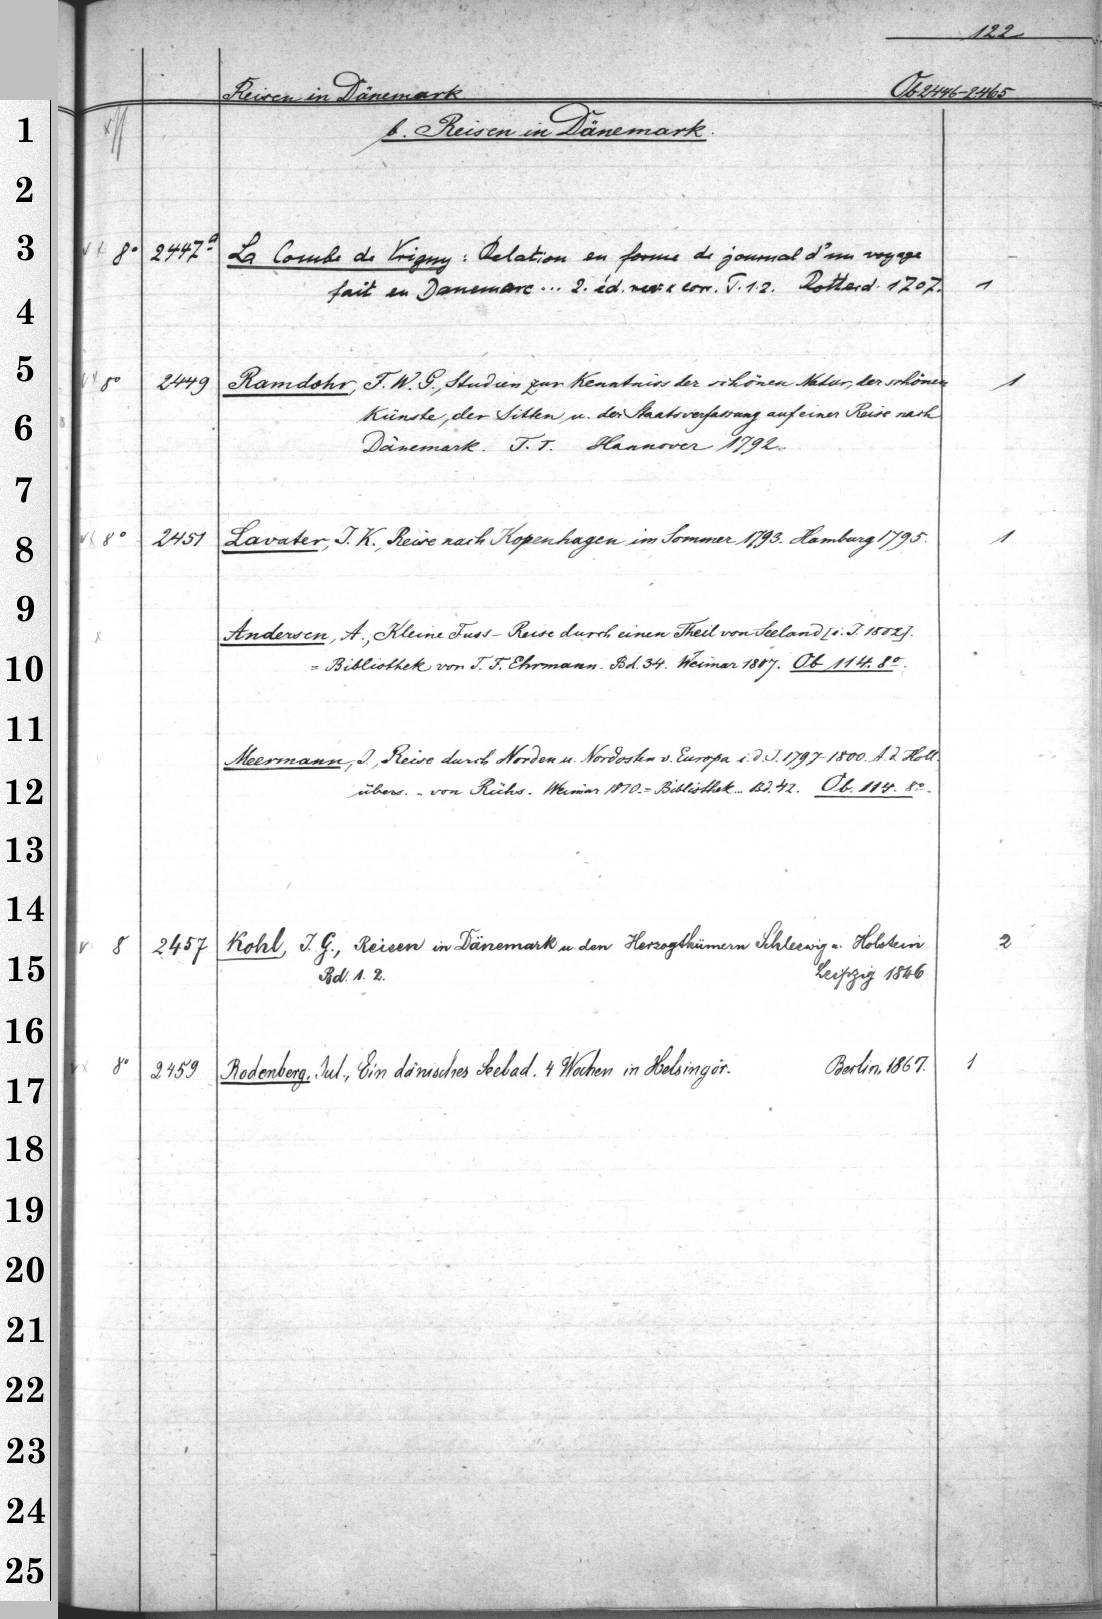 122
Reisen in Dänemark Ob 2446-2465
b. Reisen in Dänemark.
8° 2447a La Combe de Vrigny : Relation en forme de journal d'un voyage
fait en Danemarc ... 2. éd. rev. e corr. T. 1. 2. Rotterd. 1707. 1
8° 2449 Ramdohr, F. W. G., Studien zur Kenntniss der schönen Natur, der schönen 1
Künste, der Sitten u. der Staatsverfassung auf einer Reise nach
Dänemark. T. I. Hannover 1792.
8° 2451 Lavater, J. K., Reise nach Kopenhagen im Sommer 1793. Hamburg 1795. 1
Andersen, A., Kleine Fuss-Reise durch einen Theil von Seeland [i. J. 1802].
= Bibliothek von T. F. Ehrmann. Bd. 34. Weimar 1807. Ob 114. 8°.
Meermann, J., Reise durch Norden u. Nordosten v. Europa i. d. J. 1797-1800. A. d. Holl.
übers. .. von Rühs. Weimar 1810. = Bibliothek... Bd. 42. Ob. 114. 8°.
8 2457 Kohl, J. G., Reisen in Dänemark u. den Herzogthümern Schleswig u. Holstein 2
Bd. 1. 2. Leipzig 1846
8° 2459 Rodenberg, Jul., Ein dänisches Seebad. 4 Wochen in Helsingör. Berlin, 1867. 1
1
2
3
4
5
6
7
8
9
10
11
12
13
14
15
16
17
18
19
20
21
22
23
24
25